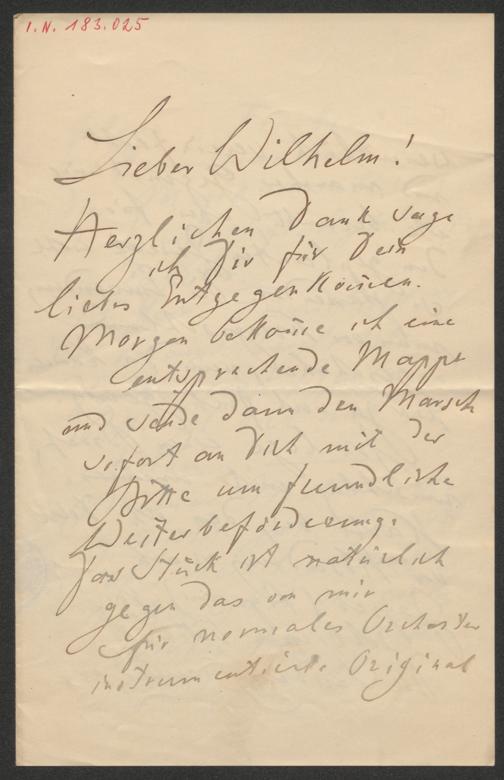 I.N. 183.025
Lieber Wilhelm!
Herzlichen Dank sage
ich Dir für Dein
liebes Entgegenkom̅en.
Morgen bekom̅e ich eine
entsprechende Mappe
und sende dann den Marsch
sofort an Dich mit der
Bitte um freundliche
Weiterbeförderung.
Das Stück ist natürlich
gegen das von mir
für normales Orchester
instrumentierte Original